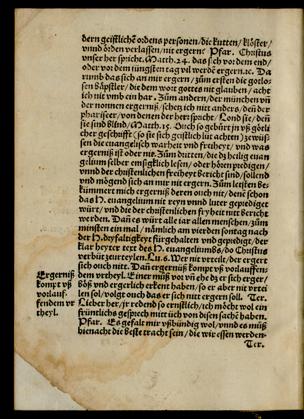 dern geistlichē ordens personen/die kutten/klöster/
vnnd örden verlassen/nit ergern? Pfar. Christus
vnser her spricht. Matth.24. das sich vor dem end/
oder vor dem iüngsten tag vil werdē ergern.ꝛc. Da
rumb das sich an mir ergern/zům ersten die gotlo-
sen Bäpstler/die dem wort gottes nit glauben/acht
ich nit vmb ein har. Zům andern/der münchen vñ
der nonnen ergernüß/schetz ich nit anders/deñ der
phariseer/von denen der herr spricht. Lond sie/deñ
sie sind blind/Matth.15. Ouch so gebürt in vß götli
cher geschrifft (so sie sich geistlich lüt achten) zewüs-
sen die euangelisch warheit vnd freiheyt/vnd was
ergernüß ist oder nit. Zům dritten/die dz heilig euan
gelium selber ernstlich lesen/oder hören predigen/
vnnd der christenlichen freiheyt bericht sind/sollend
vnd mögend sich an mir nit ergern. Zům leisten be-
kümmert mich ergernüß deren ouch nit/denē schon
das H. euangelium nit reyn vnnd luter geprediget
würt/vnd die der christenlichen fryheit nitt bericht
werden. Dañ es würt alle iar allen menschen/zům
minsten ein mal/nämlich am vierden sontag nach
der H. dryfaltigkeyt fürgehalten vnd geprediget/der
klar heyter text des H. euangeliums/do Christus
verbüt zeurteylen. Lu.6. Wer nit vrteilt/der ergert
sich ouch nitt. Dañ ergernüß kompt vß vorlauffen-
dem vrtheyl. Einer můß vor vñ ehe dz er sich erger/
böß vnd ergerlich erkent haben/so er aber nit vrtei
len sol/volgt ouch das er sich nitt ergern soll. Ter.
Lieber her/ir redend so ernstlich/ich möcht wol ein
früntlichs gesprech mitt üch von disen sachē haben.
Pfar. Es gefalt mir vßbündig wol/vnnd es můß
hienacht die beste tracht sein/die wir essen werden.
Ter.
Ergerniß
kompt vß
vorlauf-
fendem vr
theyl.